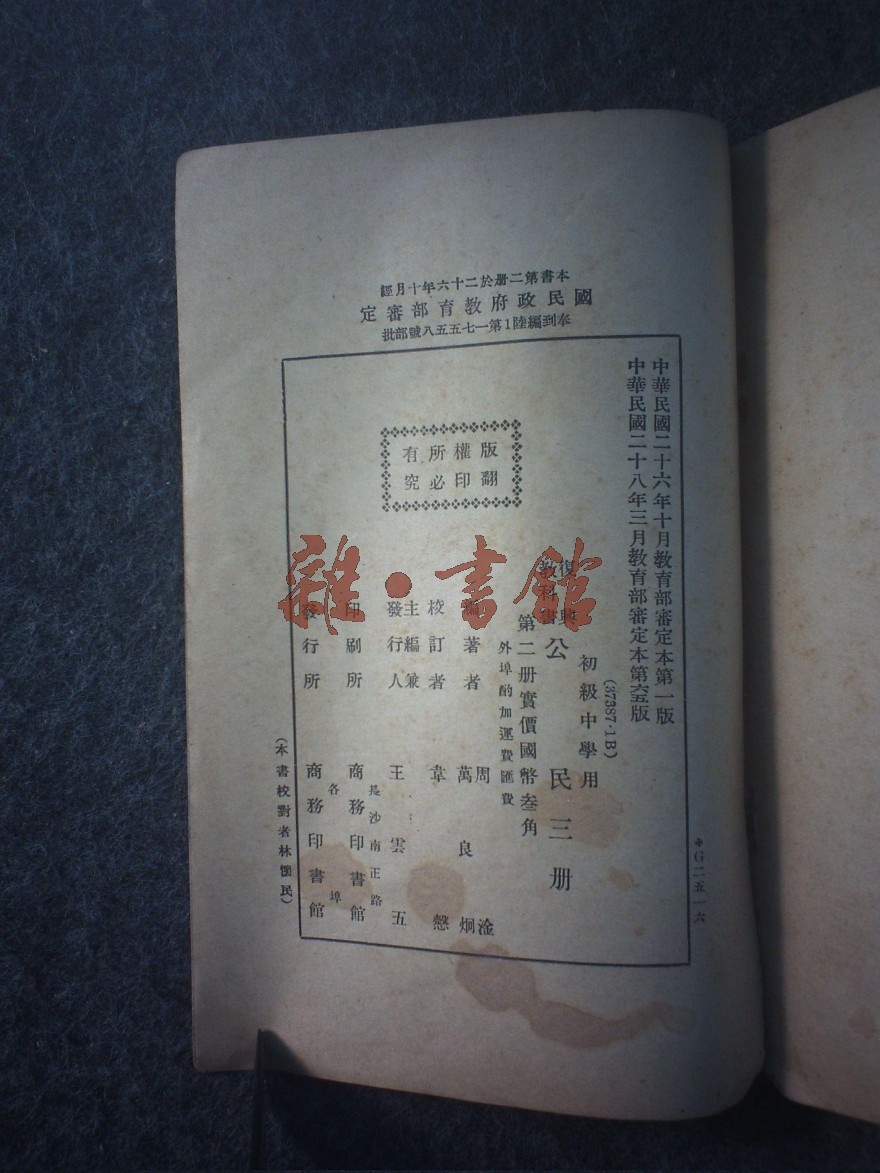 本書第二册於二十六年十月經
國民政府教育部審定
奉到編陸1第一七五五八號部批
中華民國二十六年十月教育部審定本第一版
中華民國二十八年三月教育部審定本第六五版
(37387·1B)
初級中學用
復興
教科書
公民三册
第二册實價國幣叁角
外埠酌加運費匯費
版權所有
翻印必究
編著者 周淦
萬良炯
校訂者 韋慤
主編兼
發行人 王雲五
長沙南正路
印刷所 商務印書館
各埠
發行所 商務印書館
(本書校對者林懷民)
G二五一六
雜·書館